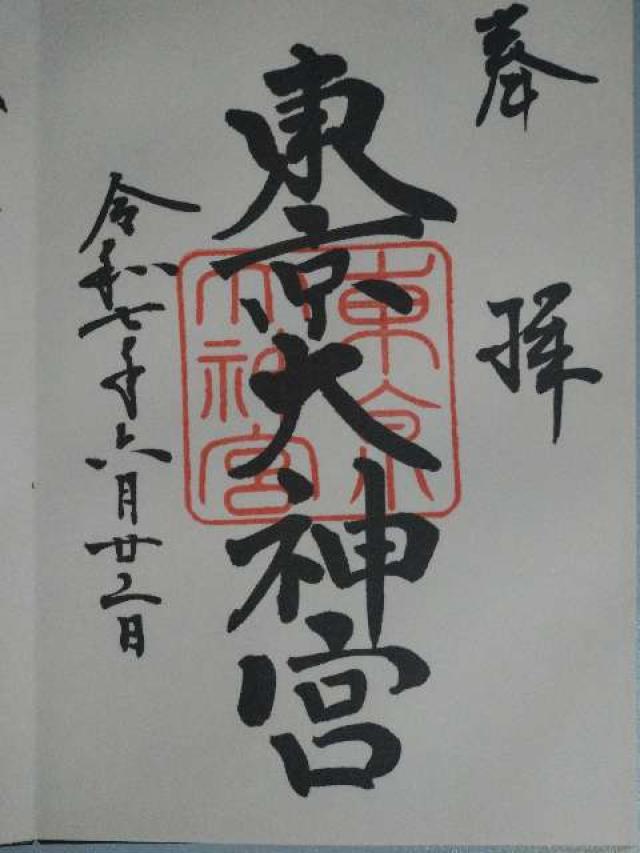 奉拝
東京大神宮
東京
大神宮
令和七年六月廿二日